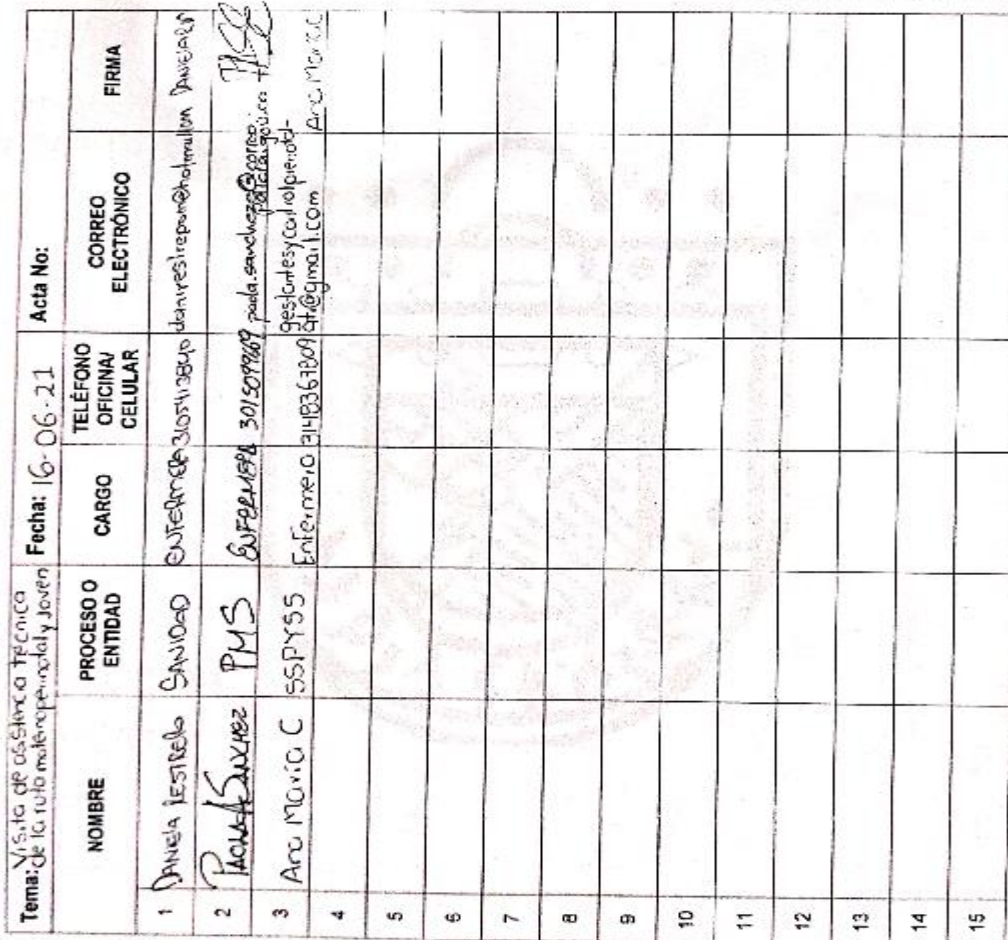 Tema: Visita de asistencia técnica
de la ruta maternoperinatal y Joven
Fecha: 16-06-21
Acta No:
NOMBRE
PROCESO O
ENTIDAD
CARGO
TELÉFONO
OFICINA/
CELULAR
CORREO
ELECTRÓNICO
FIRMA
1 DANIELA RESTREPO SANIDAD ENFERMERA 3105413840
2 PAOLA A SANCHEZ PMS ENFERMERA 3015099609 paola.sanchezg@correo.
policia.gov.co
3 Ana Maria C SSPYSS Enfermera 3148367809 gestantesycontrolpenodd-
@gmail.com Ana Maria C
4
5
6
7
8
9
10
11
12
13
14
15